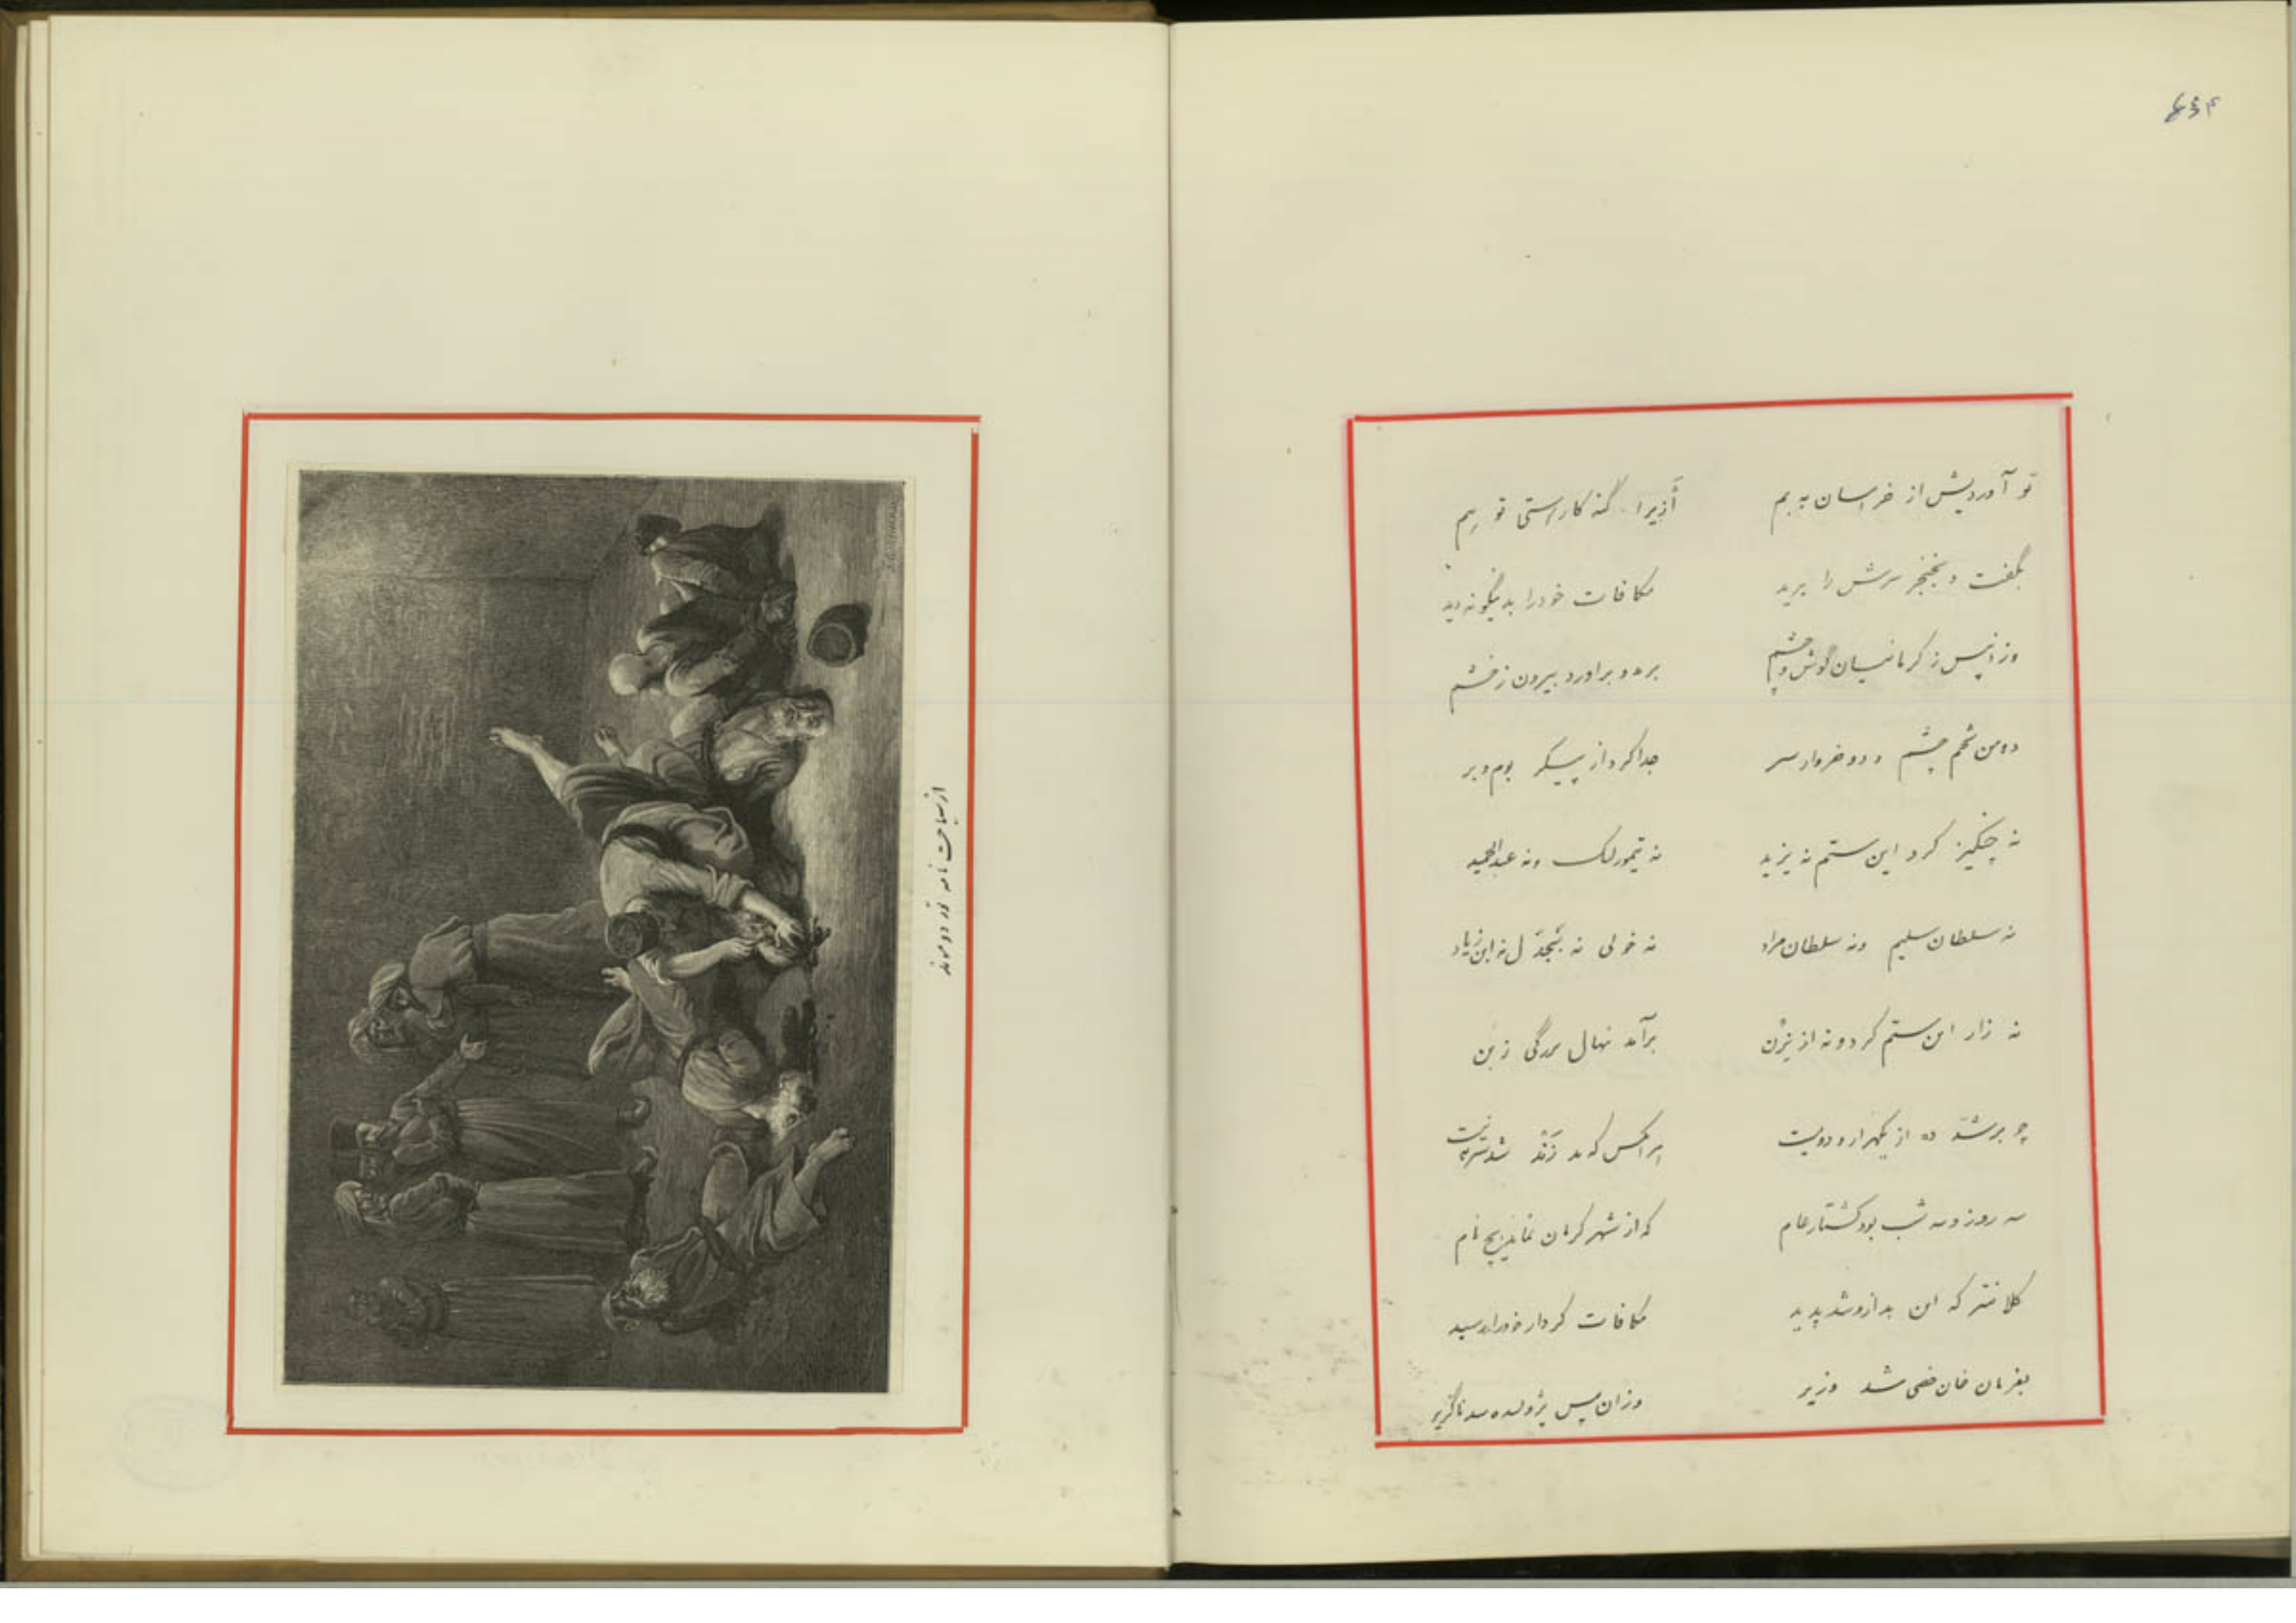 ۴۳۴
تو آوردیش از خراسان به بم اَژیرا گنه کار استی تو هم
بگفت و بخنجر سرش را برید مکافات خود را بدینگونه دید
وزانپس ز کرمانیان گوش و چشم برید و برآورد بیرون ز خشم
دو من تخم چشم و دو خروار سر جدا کرد از پیکر بوم و بر
نه چنگیز کرد این ستم نه یزید نه تیمور لنگ و نه عبدالحمید
نه سلطان سلیم و نه سلطان مراد نه خولی نه بَجدل نه ابن زیاد
نه تزار این ستم کرد و نه از برآمد نهال بزرگی ز بن
چو بر شد ده از یکهزار و دویست هر آنکس که بد زند شد
سه روز و سه شب بود کشتار عام که از شهر کرمان نماند هیچ نام
کلانتر که این بد ازو شد پدید مکافات کردار خود را رسید
بفرمان خان خصی شد وزیر وزان پس ناگزیر
از سیاحت نامه